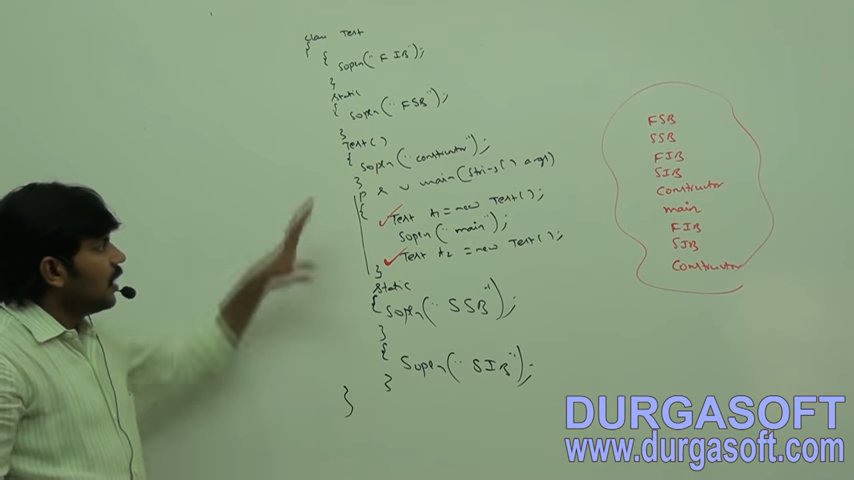 class Test
{
{
Sopln("FIB");
}
static
{
Sopln("FSB");
}
Test()
{
Sopln("constructor");
}
p s v main(String[] args)
{
Test t1 = new Test();
Sopln("main");
Test t2 = new Test();
}
static
{
Sopln("SSB");
}
{
Sopln("SIB");
}
}
FSB
SSB
FIB
SIB
Constructor
main
FIB
SIB
Constructor
DURGASOFT
www.durgasoft.com